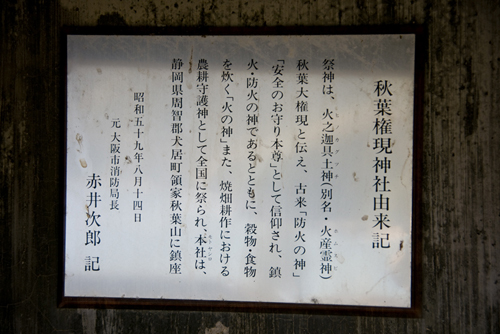 秋葉権現神社由来記
祭神は、火之迦具土神(別名・火産霊神)
秋葉大権現と伝え、古来「防火の神」
「安全のお守り本尊」として信仰され、鎮
火・防火の神であるとともに、穀物・食物
を炊く「火の神」また、焼畑耕作における
農耕守護神として全国に祭られ、本社は、
静岡県周智郡犬居町領家秋葉山に鎮座
昭和五十九年八月十四日
元大阪市消防局長
赤井次郎 記